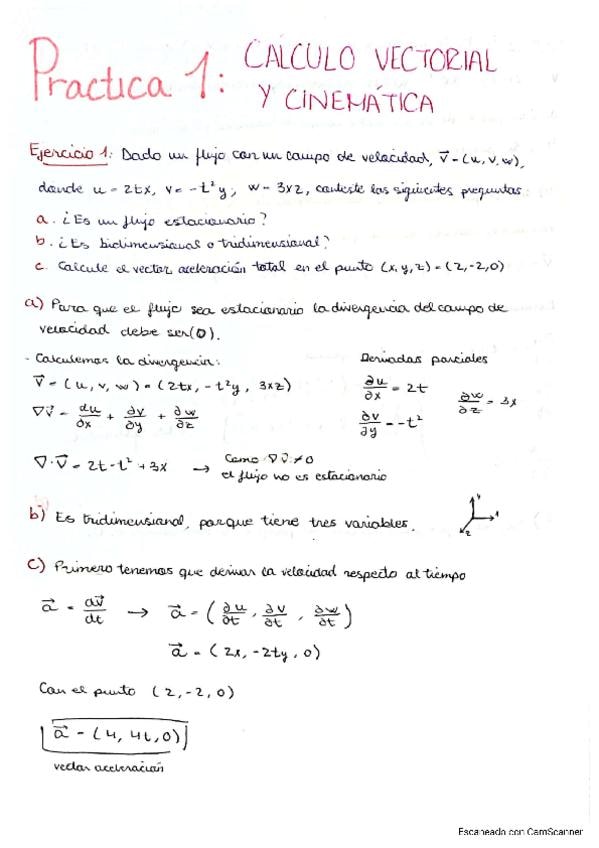 Practica 1: CALCULO VECTORIAL
Y CINEMÁTICA
Ejercicio 1: Dado un flujo con un campo de velocidad, v⃗ = (u, v, w),
donde u = 2tx, v = -t²y, w = 3xz, conteste las siguientes preguntas.
a. ¿Es un flujo estacionario?
b. ¿Es bidimensional o tridimensional?
c. Calcule el vector aceleración total en el punto (x, y, z) = (2, -2, 0)
a) Para que el flujo sea estacionario la divergencia del campo de
velocidad debe ser (0).
- Calculemos la divergencia:
Derivadas parciales
V⃗ = (u, v, w) = (2tx, -t²y, 3xz)
∂u/∂x = 2t
∂w/∂z = 3x
∇V⃗ = du/∂x + ∂v/∂y + ∂w/∂z
∂v/∂y = -t²
∇·V⃗ = 2t - t² + 3x → Como ∇V⃗ ≠ 0
el flujo no es estacionario
b) Es tridimensional, porque tiene tres variables.
c) Primero tenemos que derivar la velocidad respecto al tiempo
a⃗ = dv⃗/dt → a⃗ = (∂u/∂t, ∂v/∂t, ∂w/∂t)
a⃗ = (2x, -2ty, 0)
Con el punto (2, -2, 0)
a⃗ = (4, 4t, 0)
vector aceleración
Escaneado con CamScanner